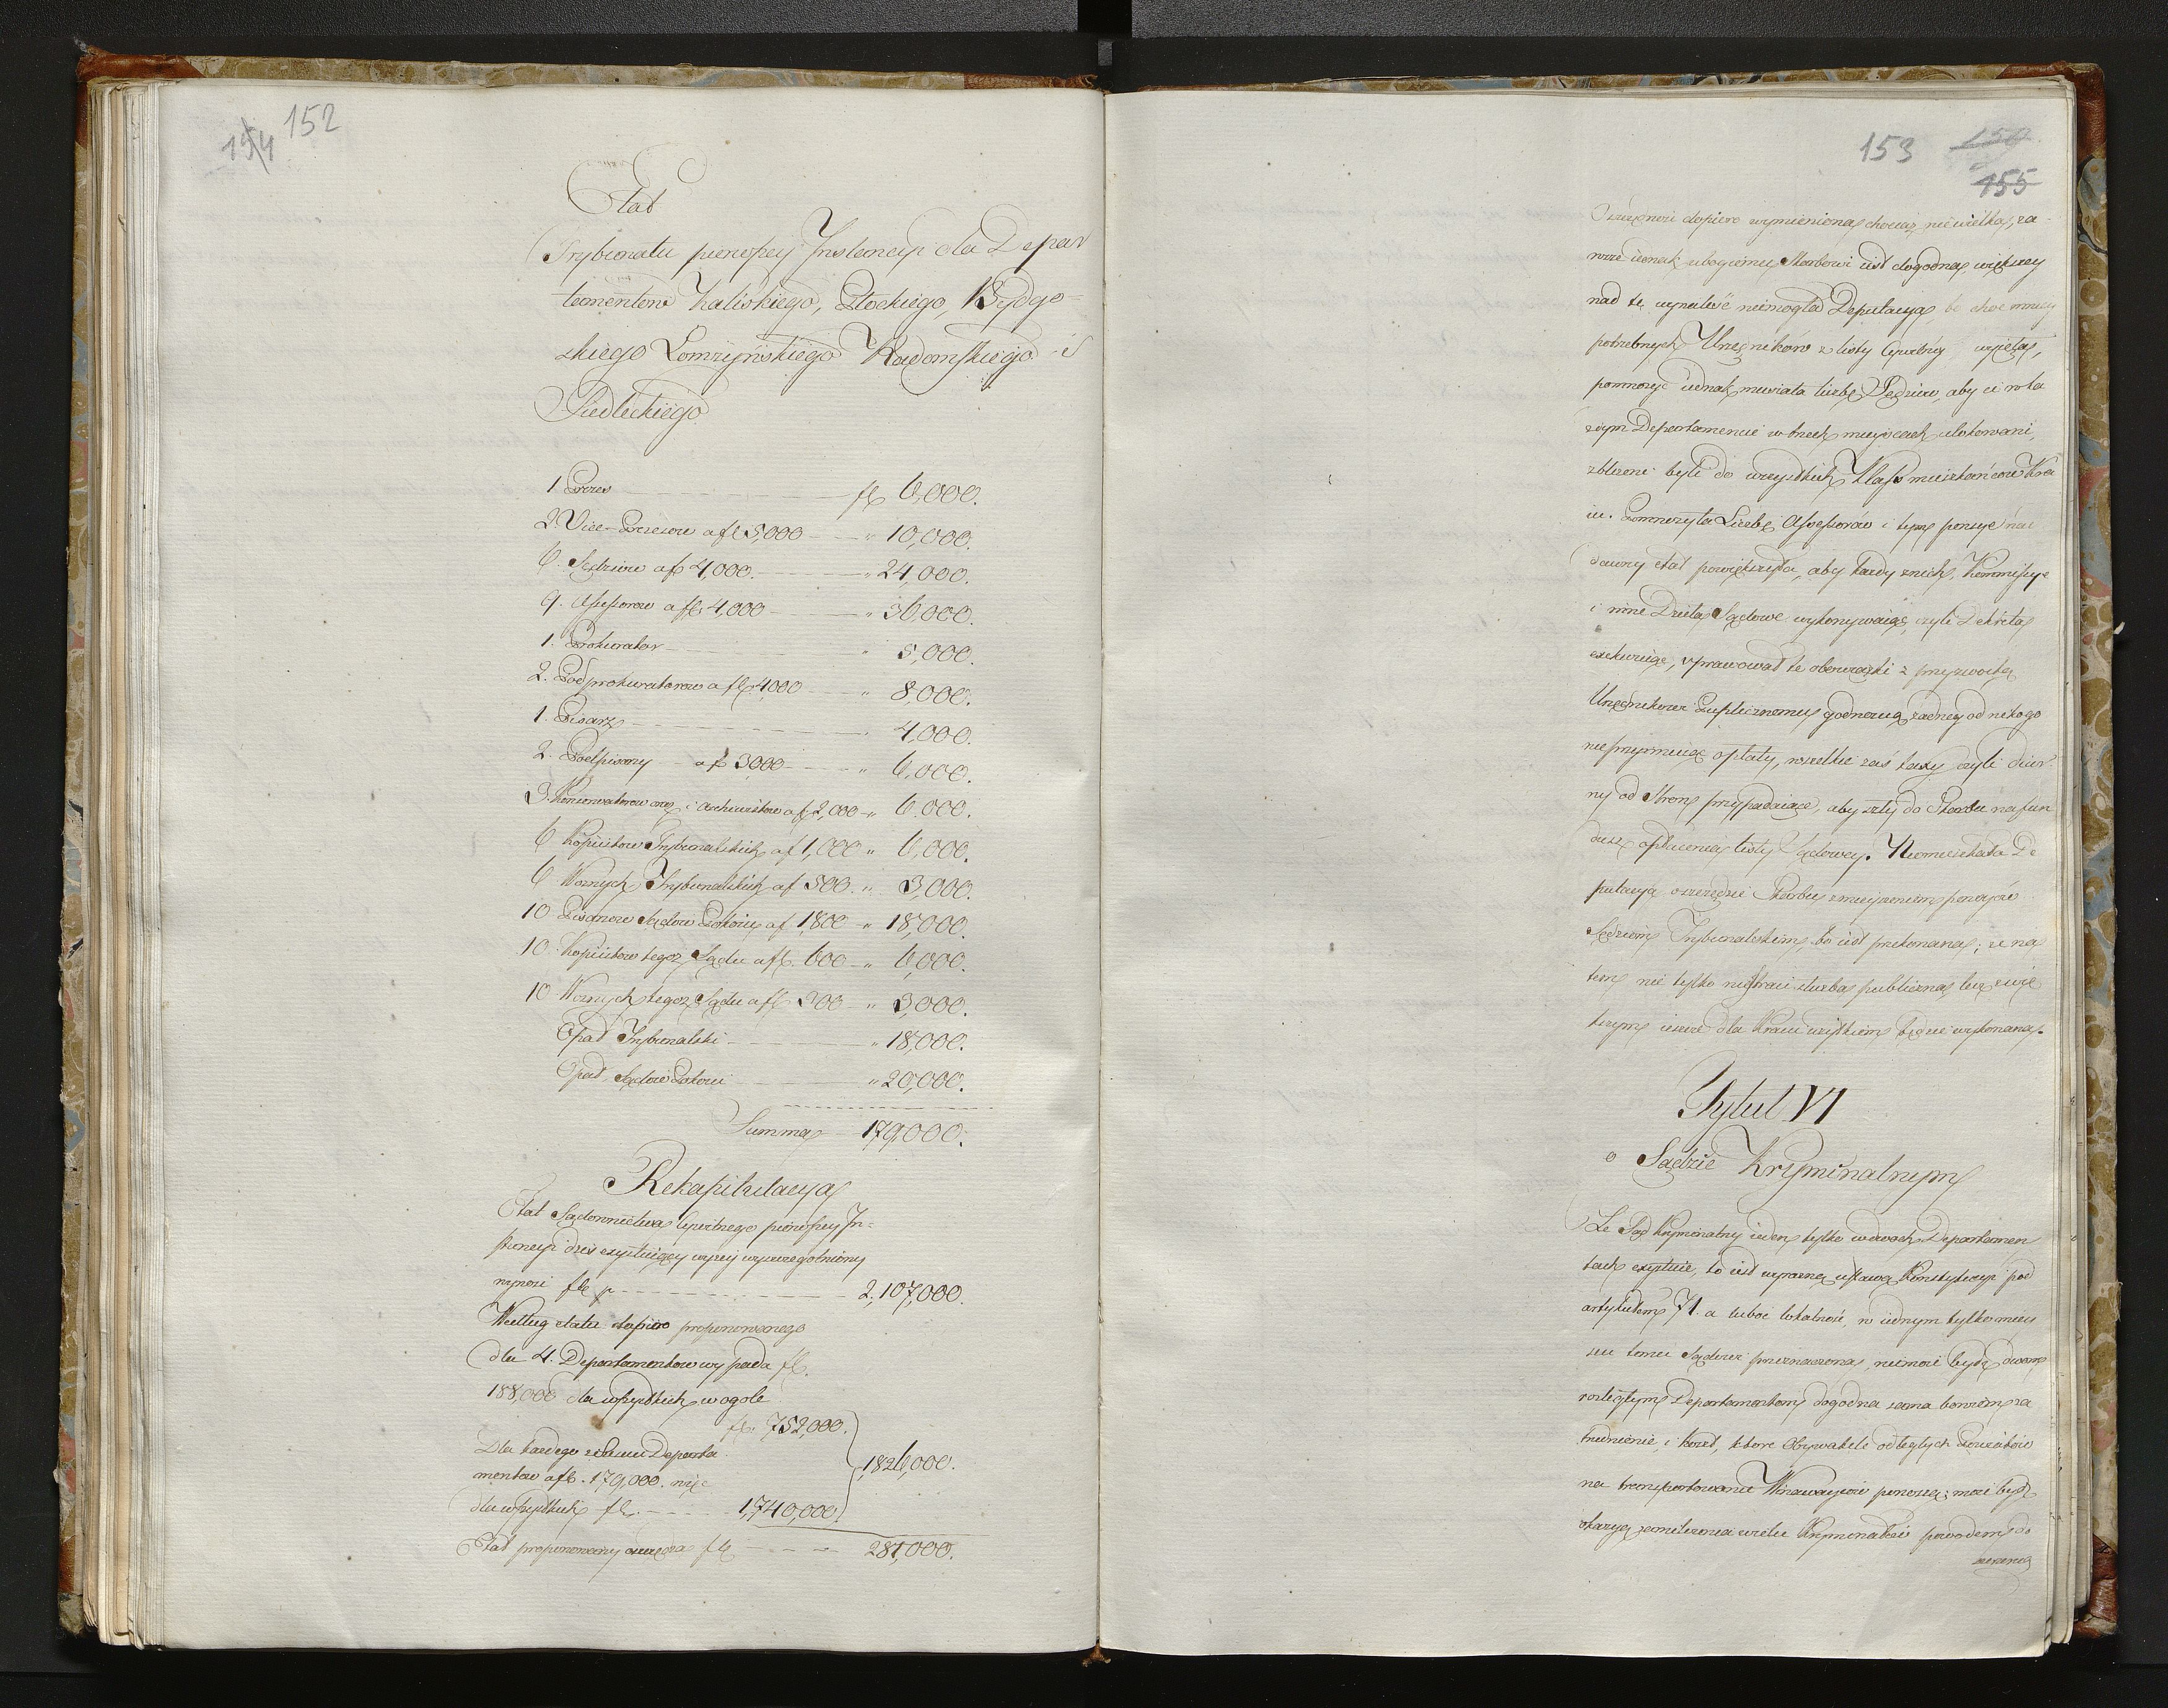 152
154
Etat
Trybunału pierwszey Instancyi dla Depar
tamentow Kaliskiego, Płockiego, Bydgo=
skiego Łomżyńskiego Radomskiego i
Siedleckiego
1 Prezes fl 6,000.
2 Vice-Prezesow a fl 5,000 " 10,000.
6. Sędziow a fl 4,000. " 24,000.
9. Assessorow a fl. 4,000 " 36,000.
1. Prokurator " 5,000.
2. Podprokuratorow a fl. 4000 " 8,000.
1. Pisarz 4,000.
2. Podpisarzy a fl 3000 " 6,000.
3. Konserwatorow oraz i Archiwistow a fl 2,000 " 6,000.
6 Kopiistow Trybunalskich a fl 1,000 " 6,000.
6 Woznych Trybunalskich a fl 500. " 3,000.
10 Pisarzow Sądow Pokoiu a fl 1,800 " 18,000.
10. Kopiistow tegoż Sądu a fl. 600 " 6,000.
10 Woznych tegoż Sądu a fl 300 " 3,000.
Opał Trybunalski " 18,000.
Opał Sądow Pokoiu " 20,000.
Summa 179,000.
Rekapitulacya
Etat Sądownictwa Cywilnego pierwszey In=
stancyi dziś exystuiący wyżey wyszczegolniony
wynosi fl p 2,107,000.
Według etatu dopiero proponowanego
dla 4. Departamentow wypada fl.
188,000 dla wszystkich w ogole
fl. 752,000.
Dla każdego z Departa
mentow a fl. 179,000. więc 1,826,000.
dla wszystkich fl. 1,740,000
Etat proponowany oszczędza fl 281,000.
153 150
155
Oszczędność dopiero wymieniona, chociaż niewielka, za
wsze iednak ubogiemu Skarbowi iest dogodna, większey
nad tę wynaleść niemogła Deputacya, bo choć mniey
potrzebnych Urzędnikow z listy Cywilney wyięła,
pomnożyć iednak musiała liczbę Sędziow, aby ci w ka
żdym Departamencie w trzech mieyscach ulokowani,
zbliżeni byli do wszystkich Klass mieszkańcow Kra
iu. Pomnożyła Liczbę Assessorow i tym pensye nad
dawny etat powiększyła, aby każdy z nich, Kommissye
i inne Dzieła Sądowe wykonywaiąc, czyli Dekreta
exekwuiąc, sprawował te obowiązki z przyzwoitą
Urzędnikowi Publicznemu godnością, żadney od nikogo
nie przyimuiąc opłaty, wszelkie zaś taxy czyli diur
ny od Stron przypadaiące, aby szły do Skarbu na fun
dusz opłacenia listy Sądowey. Niemieszkała De
putacya oszczędzić Skarbu zmnieyszeniem pensyow
Sędziom Trybunalskim, bo iest przekonana; że na
tem nie tylko nie straci służba publiczna, lecz z wię
kszym ieszcze dla Kraiu użytkiem będzie wykonana.
Tytuł VI
o Sądzie Kryminalnym
Że Sąd Kryminalny ieden tylko w dwoch Departamen
tach exystuie, to iest wyraźną ustawą Konstytucyi pod
artykułem 71. a luboć lokalność, w iednym tylko miey
scu temu Sądowi przeznaczona, niemoże bydź dwom
rozległym Departamentom dogodna sama bowiem za
trudnienie, i koszt, ktore Obywatele odległych Powiatow
na transportowanie Winowaycow ponoszą; może bydź
okazyą zamilczenia wielu Kryminałow powodem do